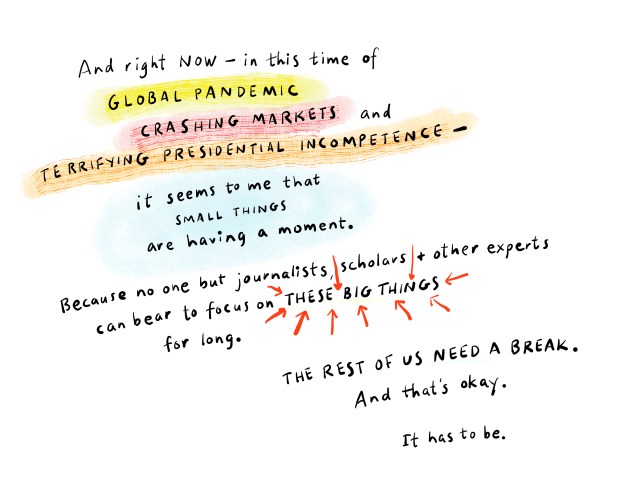 And right NOW – in this time of
GLOBAL PANDEMIC
CRASHING MARKETS and
TERRIFYING PRESIDENTIAL INCOMPETENCE –
it seems to me that
SMALL THINGS
are having a moment.
Because no one but journalists, scholars + other experts
can bear to focus on THESE BIG THINGS
for long.
THE REST OF US NEED A BREAK.
And that's okay.
It has to be.